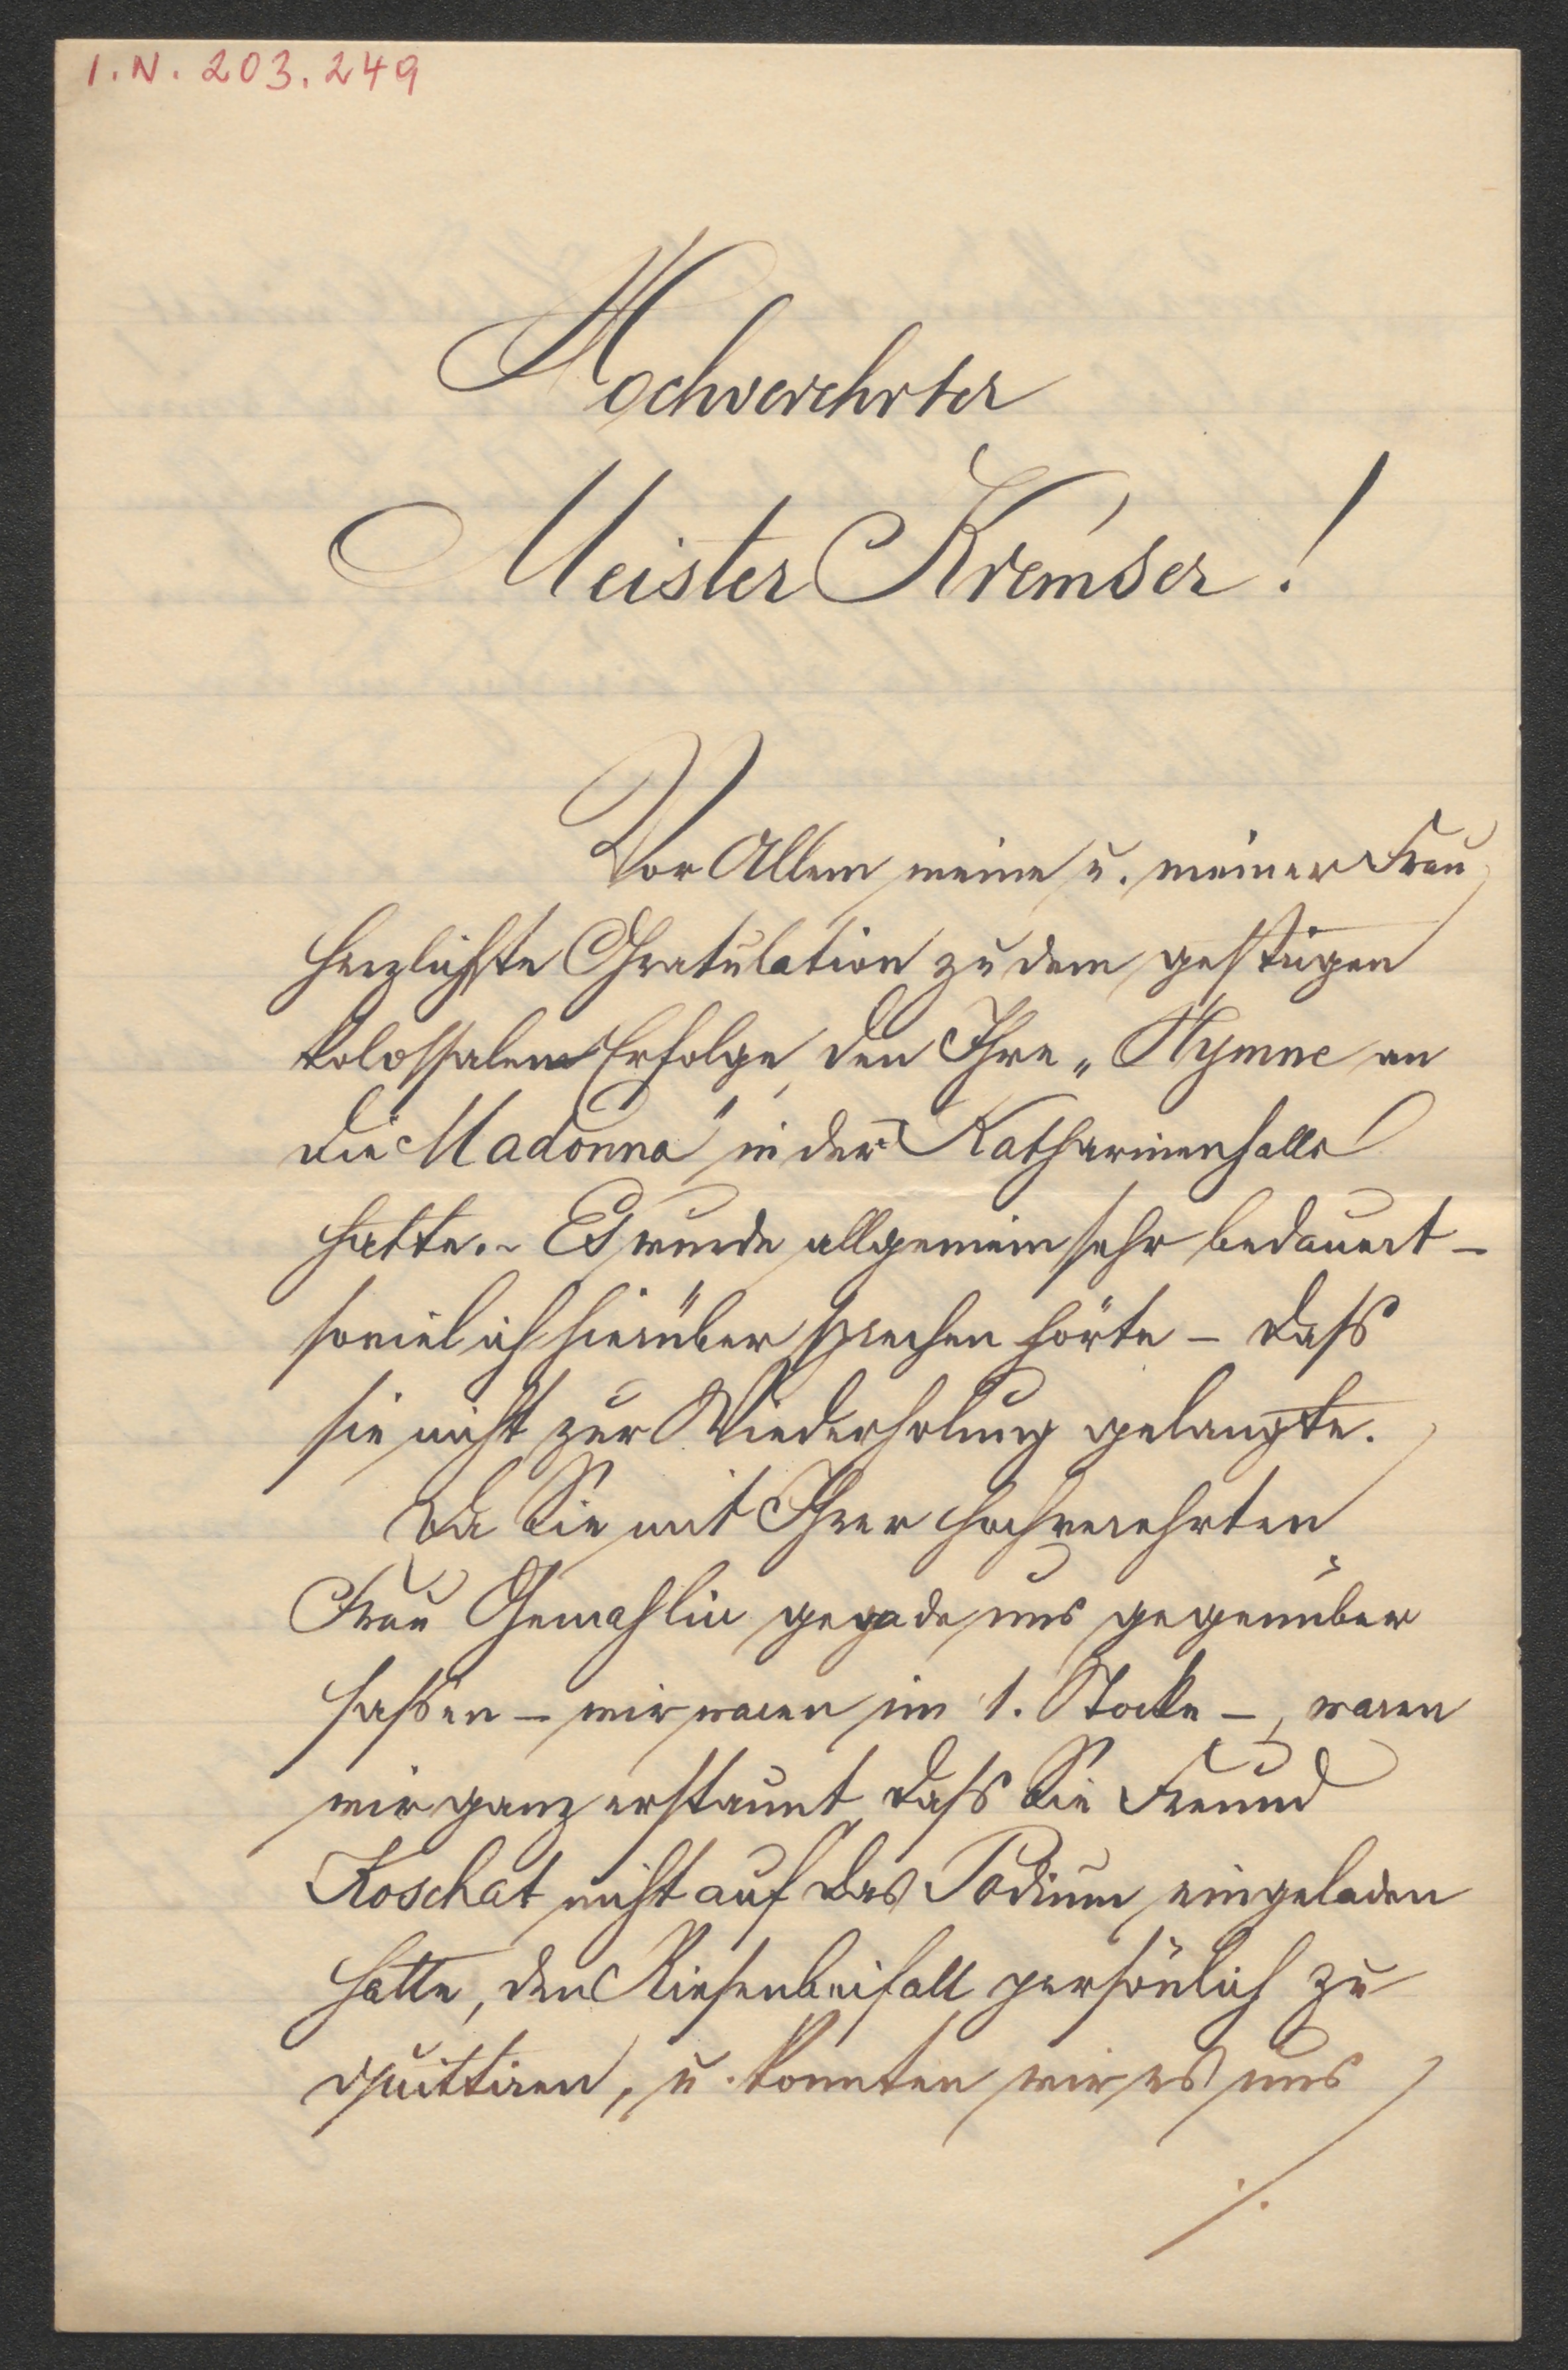 I.N. 203.249
Hochverehrter
Meister Kremser!
Vor Allem meine u. meiner Frau
herzlichste Gratulation zu dem gestrigen
kolossalen Erfolge, den Ihre „Hymne an
die Madonna" in der Katharinenhalle
hatte. – Es wurde allgemein sehr bedauert –
soviel ich hierüber sprechen hörte – dass
sie nicht zur Wiederholung gelangte.
Da Sie mit Ihrer hochverehrten
Frau Gemahlin gerade uns gegenüber
sassen – wir waren im 1. Stocke –, waren
wir ganz erstaunt, dass Sie Freund
Koschat nicht auf das Podium eingeladen
hatte, den Riesenbeifall persönlich zu
quittiren, u. konnten wir es uns
./.